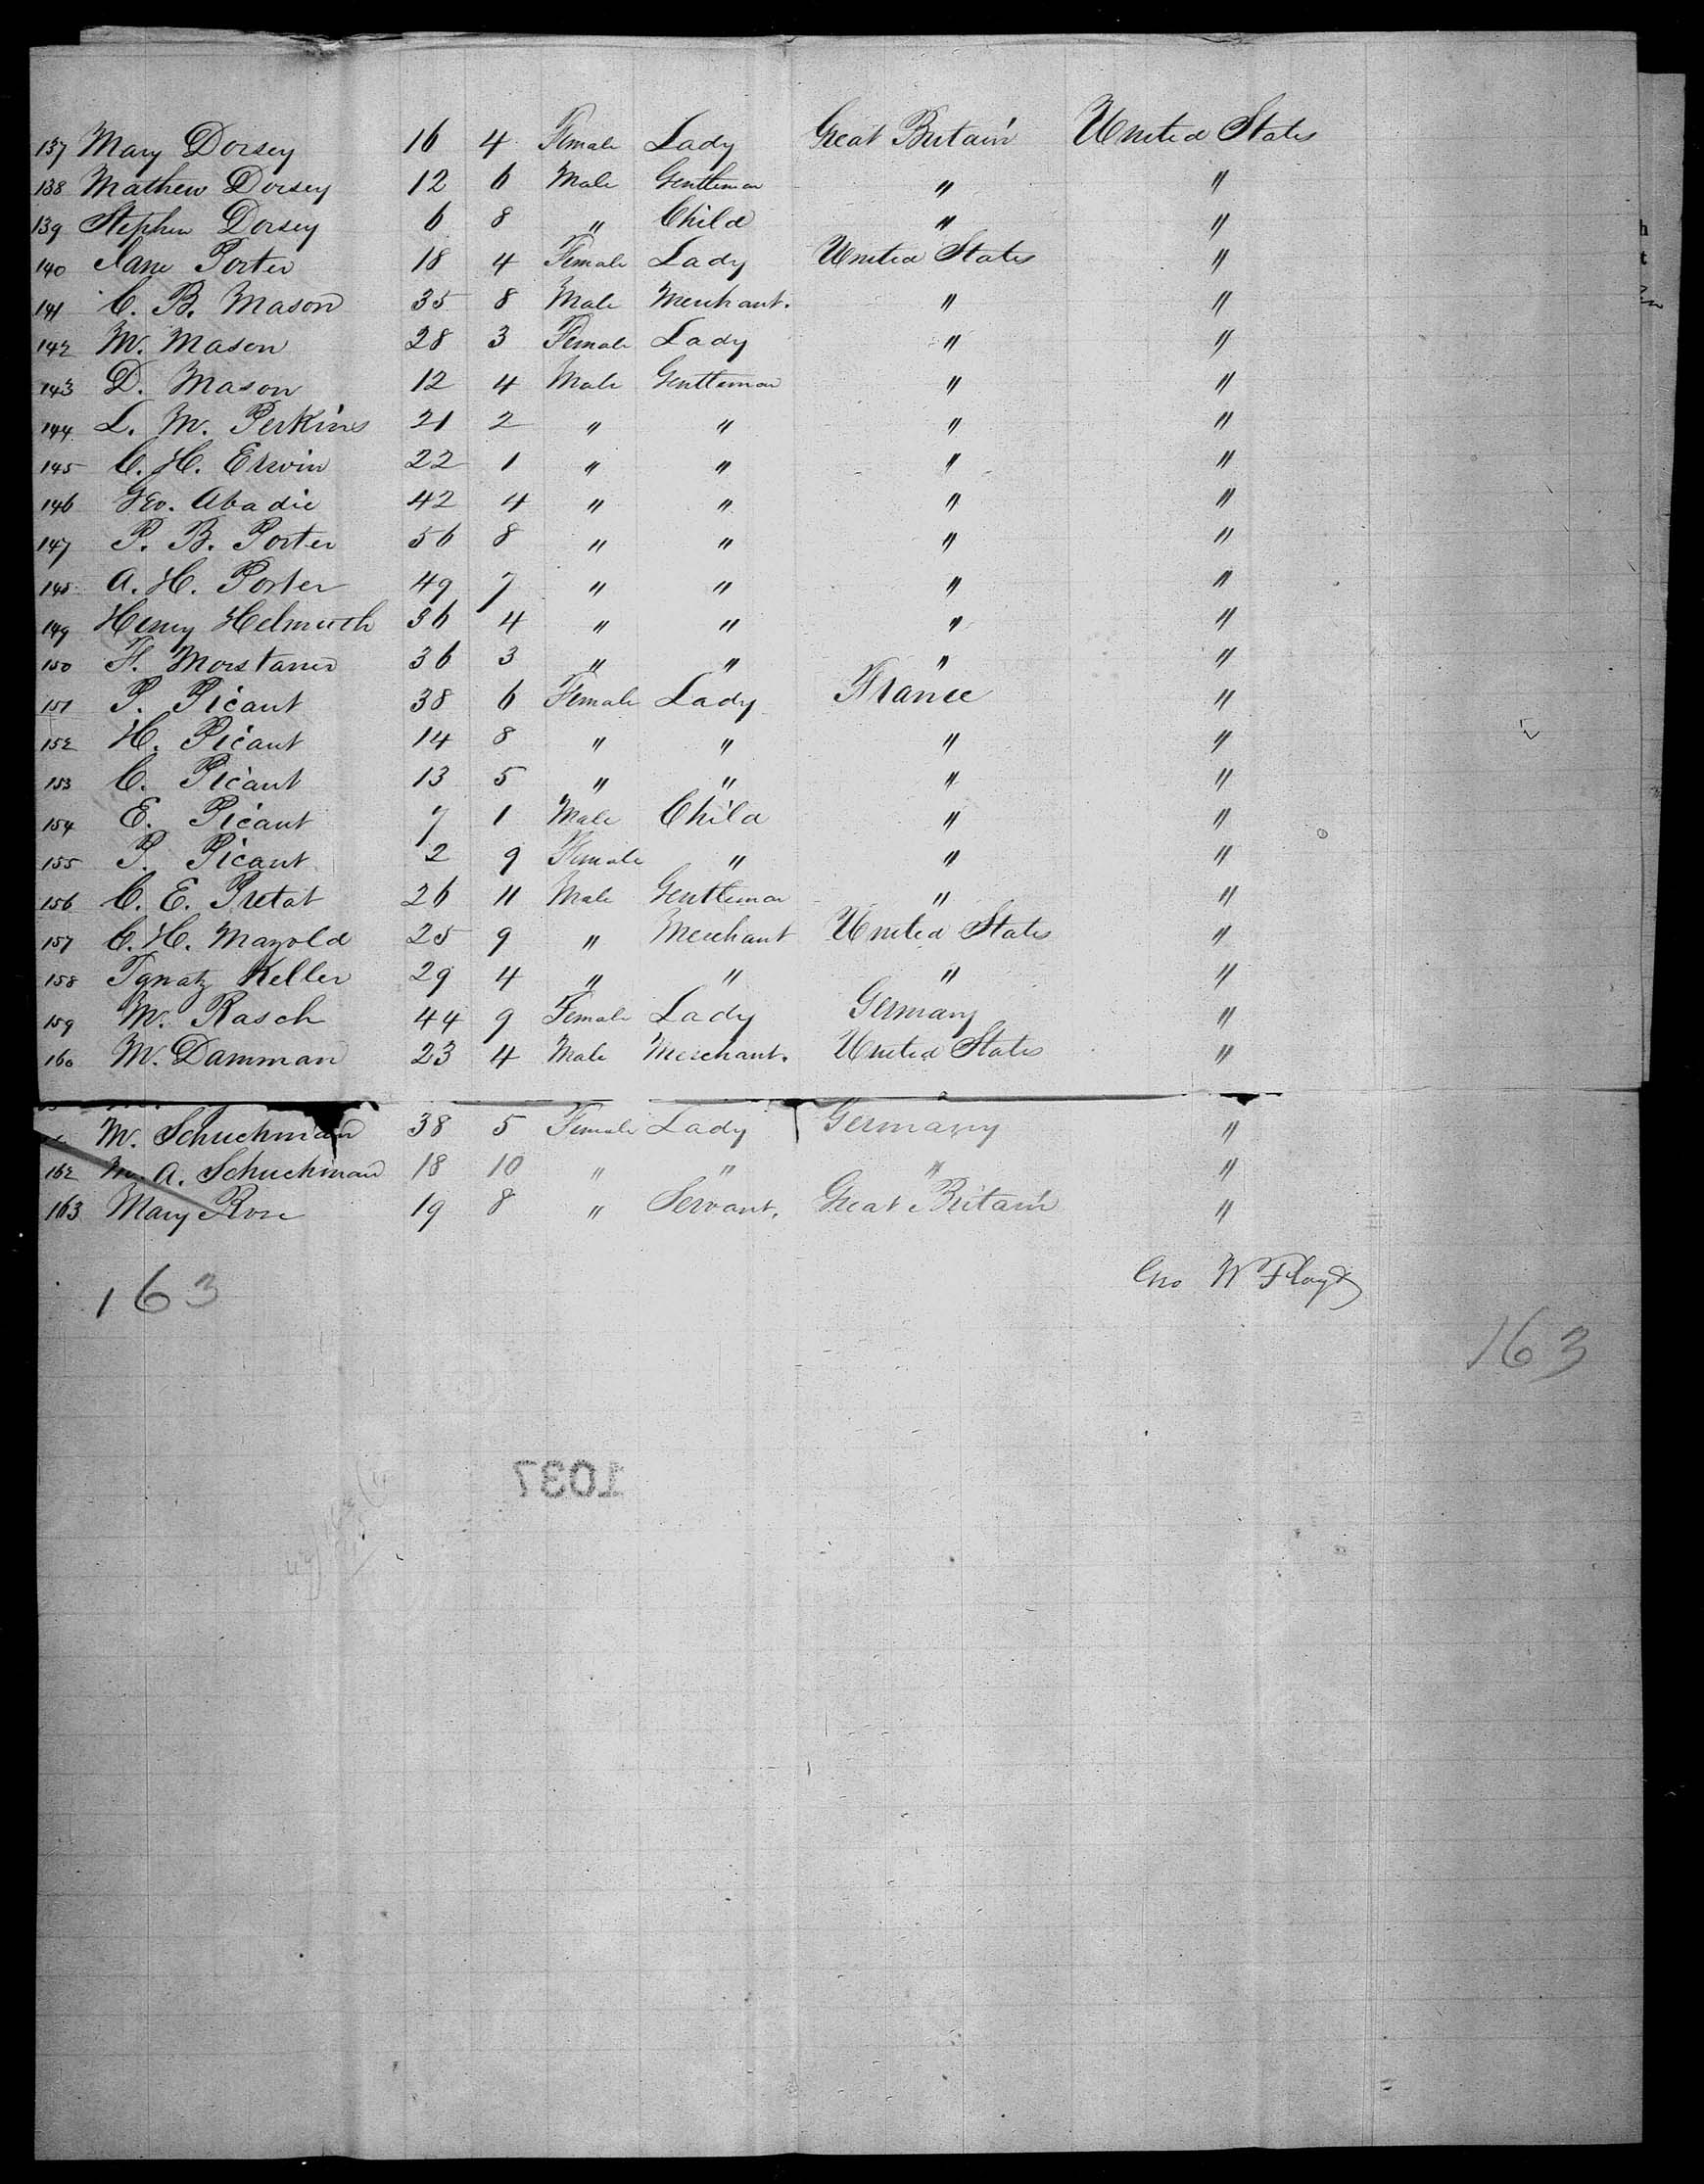 137 Mary Dorsey 16 4 Female Lady Great Britain United States
138 Mathew Dorsey 12 6 Male Gentleman " "
139 Stephen Dorsey 6 8 " Child " "
140 Jane Porter 18 4 Female Lady United States "
141 C. B. Mason 35 8 Male Merchant. " "
142 M. Mason 28 3 Female Lady " "
143 D. Mason 12 4 Male Gentleman " "
144 L. M. Perkins 21 2 " " " "
145 C. H. Erwin 22 1 " " " "
146 Geo. Abadie 42 4 " " " "
147 P. B. Porter 56 8 " " " "
148 A. H. Porter 49 7 " " " "
149 Henry Helmuth 36 4 " " " "
150 F. 36 3 " " " "
151 P. Picaut 38 6 Female Lady France "
152 H. Picaut 14 8 " " " "
153 C. Picaut 13 5 " " " "
154 E. Picaut 7 1 Male Child " "
155 P. Picaut 2 9 Female " " "
156 C. E. Pretat 26 11 Male Gentleman " "
157 C. H. Mayold 25 9 " Merchant United States "
158 Ignatz Keller 29 4 " " " "
159 M. Rasch 44 9 Female Lady Germany "
160 M. Damman 23 4 Male Merchant. United States "
M. Schuchman 38 5 Female Lady Germany "
162 M. A. Schuchman 18 10 " " " "
163 Mary Rose 19 8 " Servant. Great Britain "
Geo W Floyd
163
163
1037